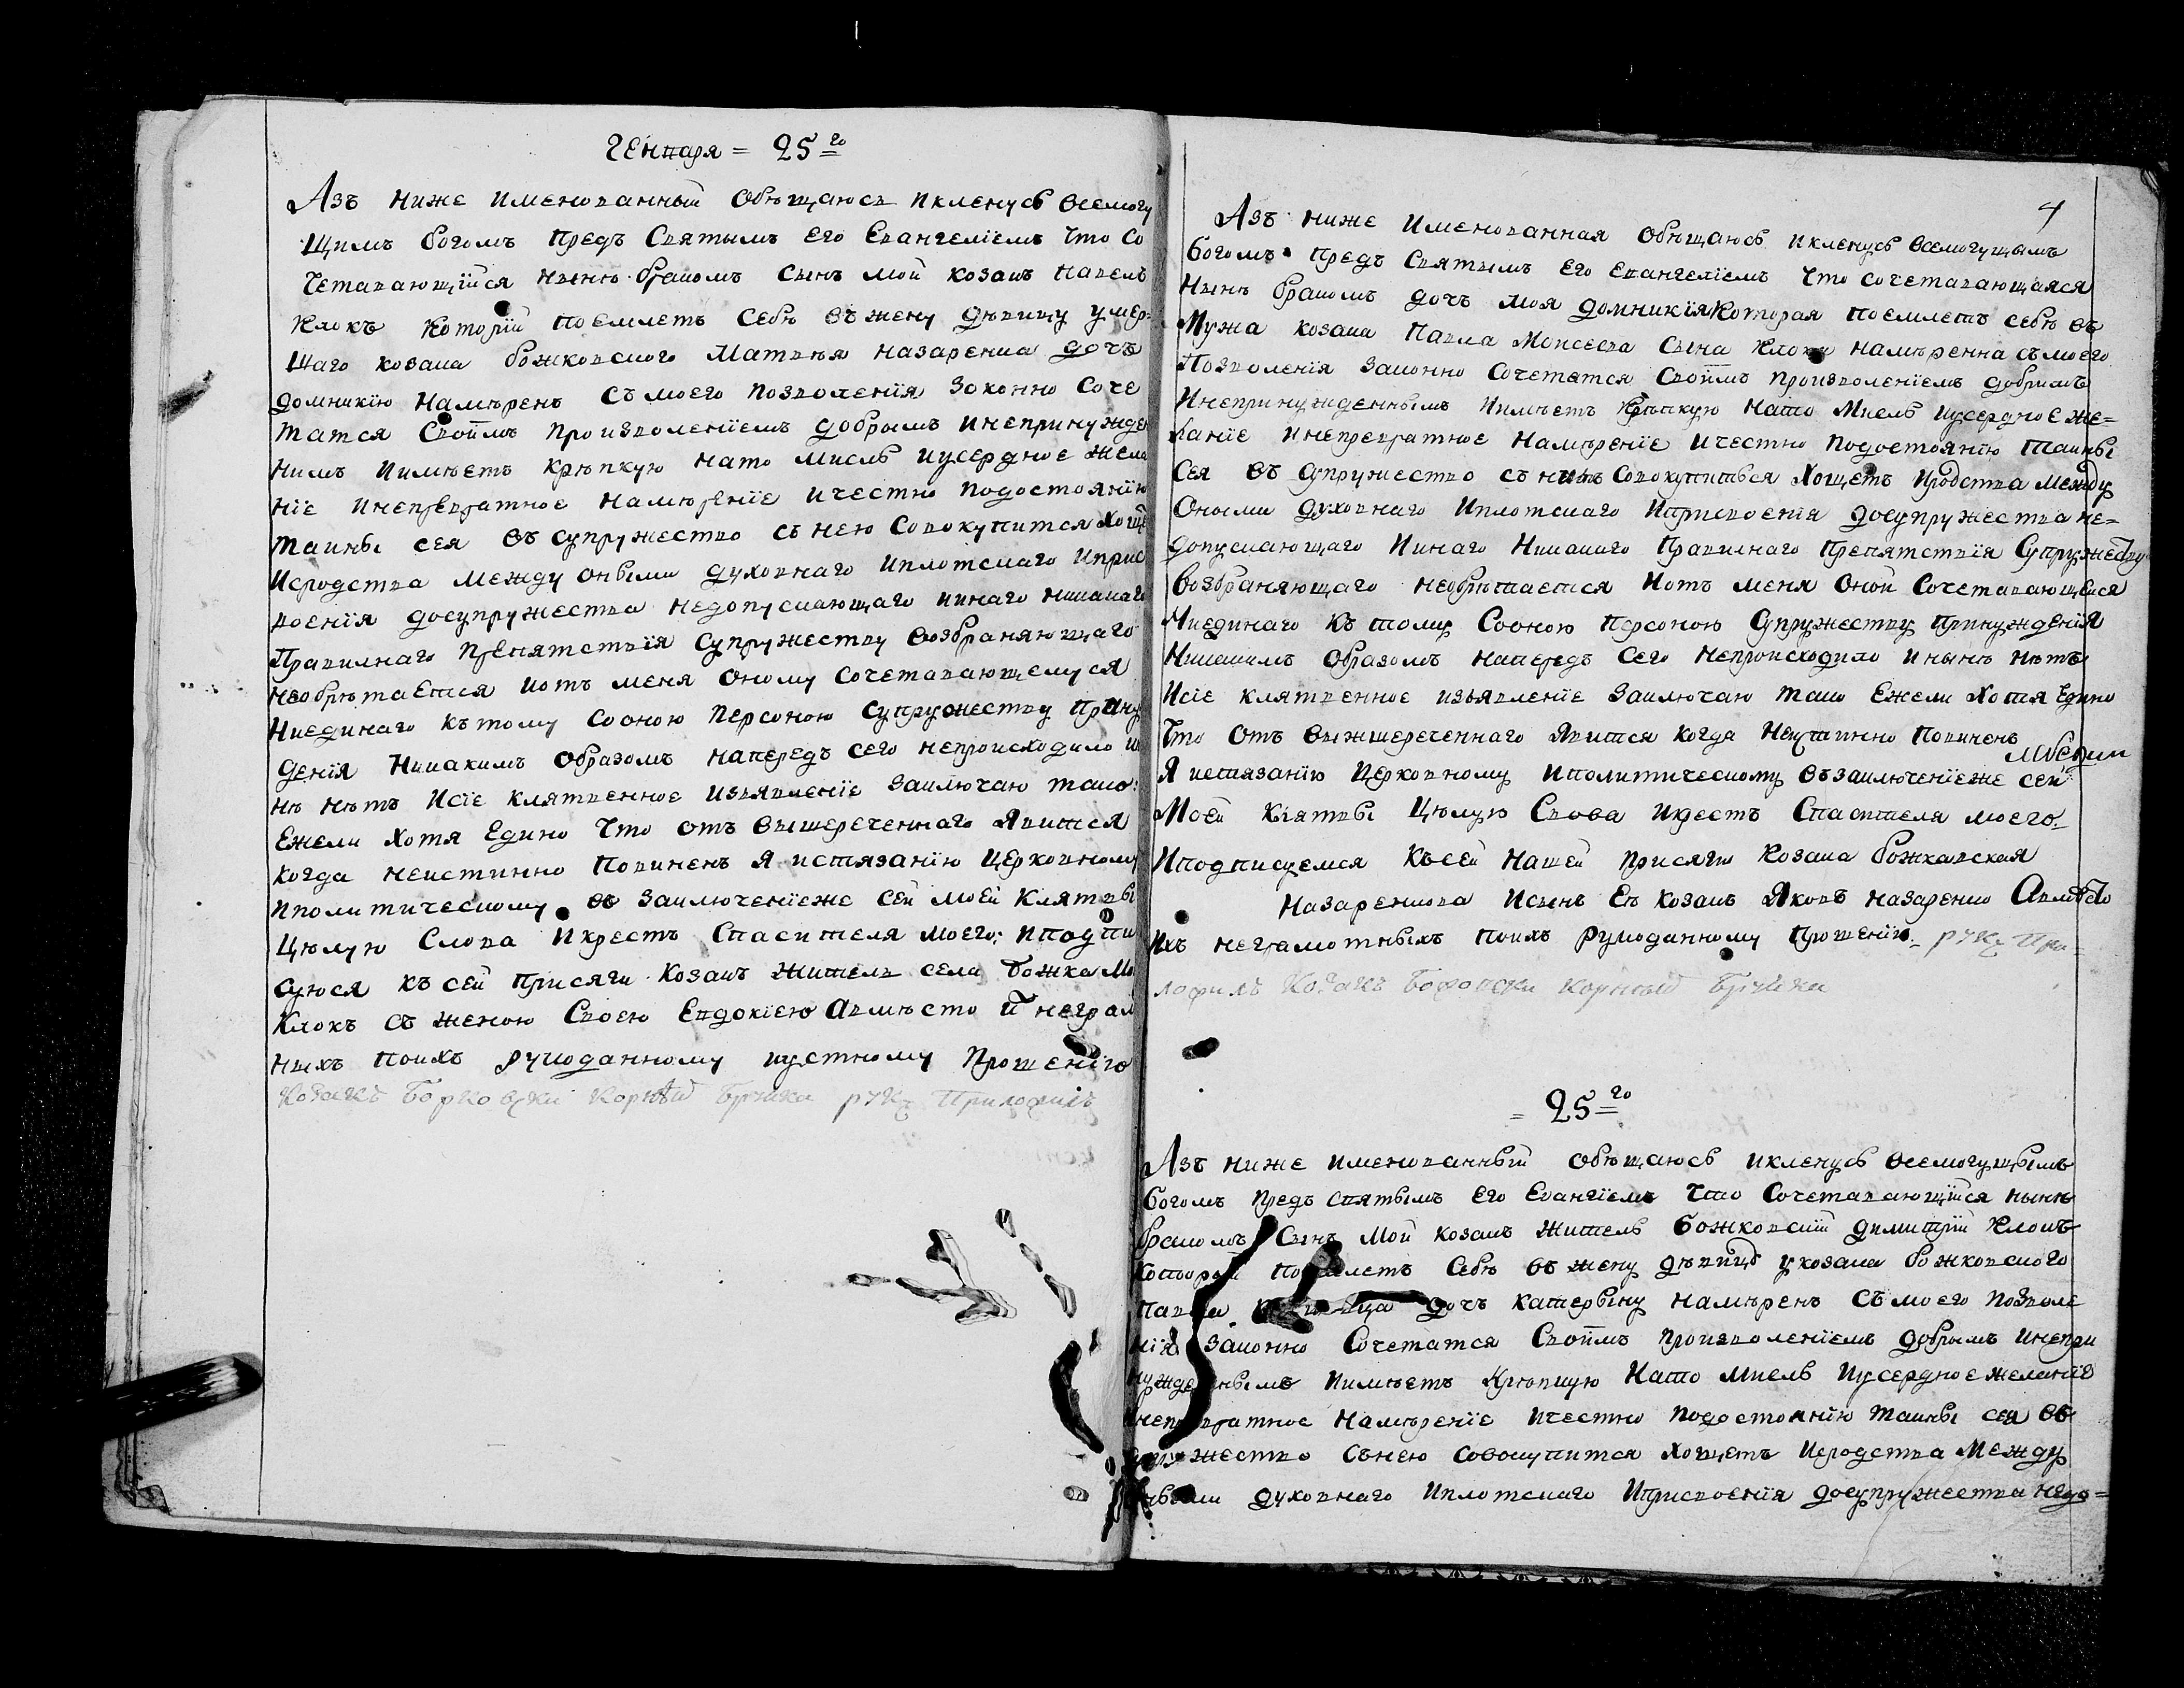 Генваря = 25го
Азъ ниже именованный обѣщаюсь икленусь всемогу
щимъ богомъ предъ Святымъ его Евангелїемъ что со
четавающїйся нынѣ бракомъ сынъ мой козакъ Павелъ
Клокъ которїй поемлетъ себѣ въ жену дѣвицу умер-
шаго козака божковского Матвѣя назаренка дочь
домникїю намѣренъ съ моего позволенїя законно соче
татся своимъ произволенїемъ добрымъ инепринужден
нимъ иимѣетъ крѣпкую нато мислъ иусердное жела
нїе инепревратное намѣренїе ичестно подостоянїю
таины сея въ супружество съ нею совокупится хоще
исродства между оными духовнаго иплотскаго иприс
военїя досупружества недопускающаго иинаго никакаго
правилнаго препятствїя супружеству возбраняющаго
необрѣтается иотъ меня оному сочетавающемуся
ниединаго къ тому сооною персоною супружеству прину
денїя никакимъ образомъ напередъ сего непроисходило ин
нѣ нѣтъ исїе клятвенное изъявленїе заключаю тако:
Ежели хотя едино что отъ вышереченнаго явится
когда неистинно повиненъ я истязанїю церковному
иполитическому въ заключенїеже сей моей клятвы
цѣлую слова икрестъ Спасителя моего: иподпи
суюся къ сей присяги козакъ житель села божка Мо
Клокъ съ женою своею Евдокїею авмѣсто и неграм
ныхъ поихъ рукоданному иустному прошенїю
козакъ Божковски Корнѣй Бруйка руку Приложилъ
4
Азъ ниже именованная обѣщаюсь икленусь всемогущымъ
богомъ предъ Святымъ его евангелїемъ что сочетавающаяся
нынѣ бракомъ дочъ моя домникїя которая поемлетъ себѣ въ
мужа козака Павла Моисеева сына Клока намѣренна съ моего
позволенїя законно сочетатся своимъ произволенїемъ добримъ
инепринужденнымъ иимѣетъ крѣпкую нато мислъ иусердное же=
ланїе инепревратное намѣренїе ичестно подостоянїю таины
сея въ супружество съ нимъ совокупиться хощетъ исродства между
оными духовнаго иплотскаго иприсвоенїя досупружества не=
допускающаго иинаго никакаго правилнаго препятствїя супружеству
возбраняющаго необрѣтается иотъ меня оной сочетавающейся
ниединаго къ тому сооною персоною супружеству принужденїя
никакимъ образомъ напередъ сего непроисходило инынѣ нѣтъ
исїе клятвенное изъявленїе заключаю тако ежели хотя едино
что отъ вижшереченнаго явится когда неистинно повиненъ
я истязанїю церковному иполитическому въ заключенїеже сей
моей клятвы цѣлую слова икрестъ Спасителя моего:
иподписуемся къ сей нашей присягѣ козака божковская
назаренкова исынъ ея козакъ Яковъ назаренко авмѣсто
ихъ неграмотныхъ поихъ рукоданному прошенїю руку При-
ложилъ козакъ Божовски Корнѣй Бруйка
= 25го
Азъ ниже именованный обѣщаюсь икленусь всемогущымъ
богомъ предъ святымъ его евангїемъ что сочетавающїйся нынѣ
бракомъ сынъ мой козакъ житель божковскїй димитрїй Клокъ
которой поемлетъ себѣ въ жену дѣвицу укозака божковского
Павла дочъ катерыну намѣренъ съ моего позволе
нїя законно сочетатся своимъ произволенїемъ добрымъ инепри
нужденнымъ иимѣетъ крѣпкую нато мислъ иусердное желанїе
инепревратное намѣренїе ичестно подостоянїю таины сея въ
супружество сънею совокупится хощетъ исродства между
оными духовнаго иплотскаго иприсвоенїя досупружества недо=